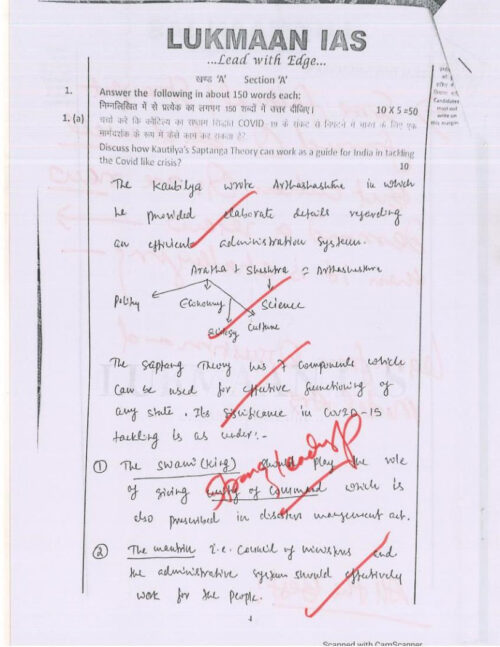 LUKMAAN IAS
...Lead with Edge...
खण्ड 'A' Section 'A'
1. Answer the following in about 150 words each:
निम्नलिखित में से प्रत्येक का लगभग 150 शब्दों में उत्तर दीजिए। 10 X 5 =50
1. (a) चर्चा करें कि कौटिल्य का सप्तांग सिद्धांत COVID -19 के संकट से निपटने में भारत के लिए एक
मार्गदर्शक के रूप में कैसे काम कर सकता है?
Discuss how Kautilya's Saptanga Theory can work as a guide for India in tackling
the Covid like crisis? 10
Candidates
must not
write on
this margin
The Kautilya wrote Arthashastra in which
he provided elaborate details regarding
an efficient administration system.
Artha + Shashtra = Arthashastra
Polity Economy Science
Culture
The Saptang Theory has 7 components which
can be used for effective functioning of
any state. Its significance in COVID-19
tackling is as under:-
① The swami (King) should play the role
of giving unity of command which is
also prescribed in disaster management act.
② The mantrin i.e. Council of ministers and
the administrative system should effectively
work for the people.
Scanned with CamScanner